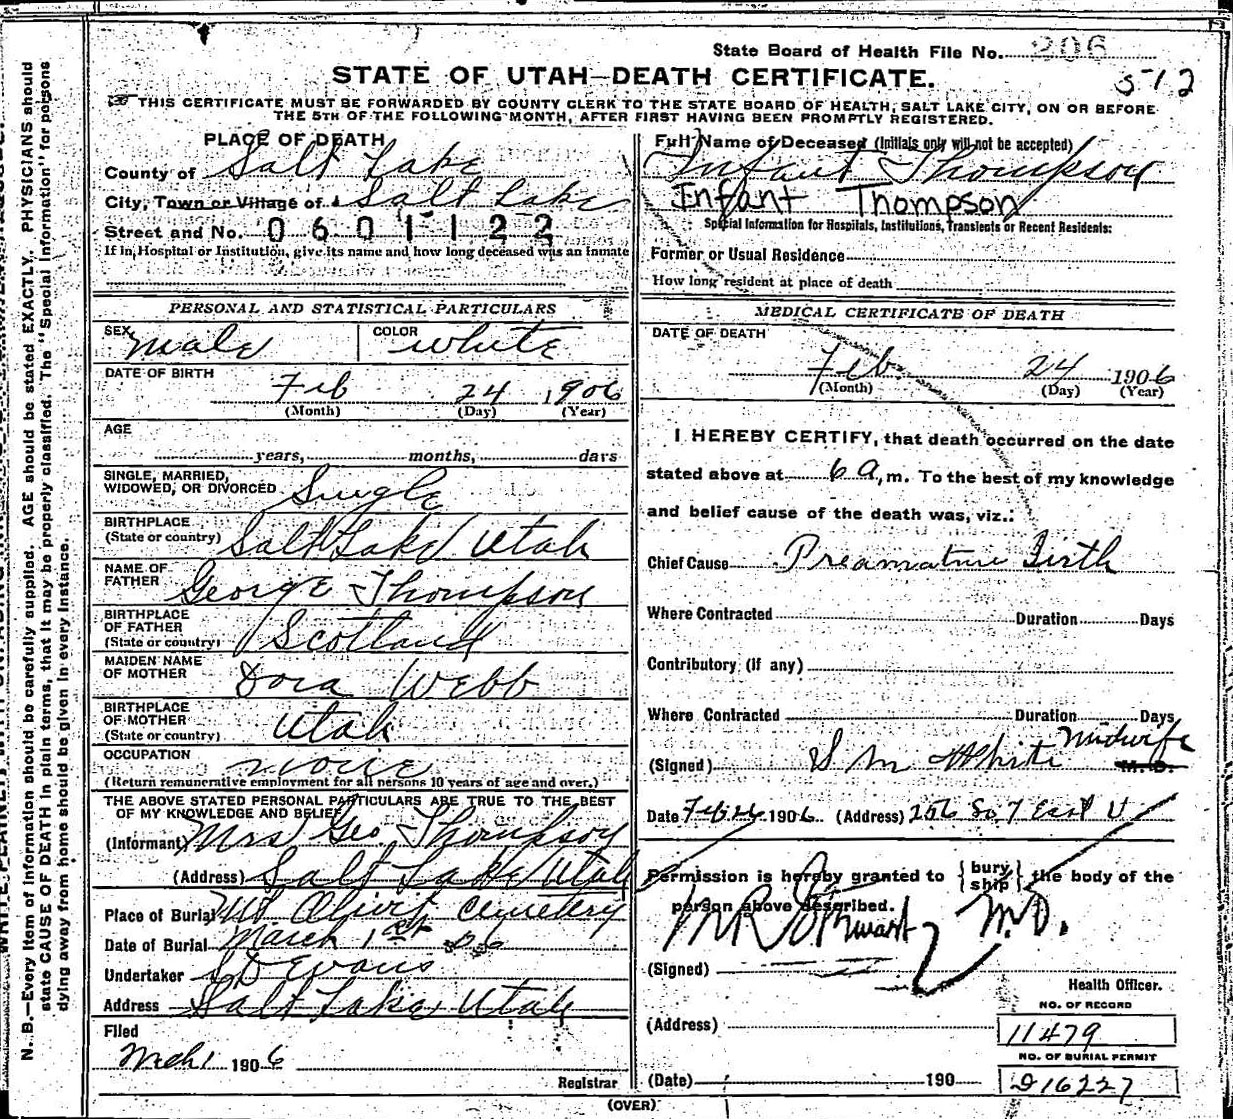 State Board of Health File No. 206
512
STATE OF UTAH—DEATH CERTIFICATE.
THIS CERTIFICATE MUST BE FORWARDED BY COUNTY CLERK TO THE STATE BOARD OF HEALTH, SALT LAKE CITY, ON OR BEFORE
THE 5TH OF THE FOLLOWING MONTH, AFTER FIRST HAVING BEEN PROMPTLY REGISTERED.
PLACE OF DEATH
County of Salt Lake
City, Town or Village of Salt Lake
Street and No. 0601122
If in Hospital or Institution, give its name and how long deceased was an inmate
PERSONAL AND STATISTICAL PARTICULARS
SEX male COLOR white
DATE OF BIRTH
Feb 24 1906
(Month) (Day) (Year)
AGE
years, months, days
SINGLE, MARRIED,
WIDOWED, OR DIVORCED Single
BIRTHPLACE
(State or country) Salt Lake Utah
NAME OF
FATHER George Thompson
BIRTHPLACE
OF FATHER
(State or country) Scotland
MAIDEN NAME
OF MOTHER Dora Webb
BIRTHPLACE
OF MOTHER
(State or country) Utah
OCCUPATION none
(Return remunerative employment for all persons 10 years of age and over.)
THE ABOVE STATED PERSONAL PARTICULARS ARE TRUE TO THE BEST
OF MY KNOWLEDGE AND BELIEF
(Informant) Mrs Geo. Thompson
(Address) Salt Lake Utah
Place of Burial Mt Olivet Cemetery
Date of Burial March 1st 06
Undertaker S D Evans
Address Salt Lake Utah
Filed
Mch 1 1906
Registrar
Full Name of Deceased (Initials only will not be accepted)
Infant Thompson
Infant Thompson
Special Information for Hospitals, Institutions, Transients or Recent Residents:
Former or Usual Residence
How long resident at place of death
MEDICAL CERTIFICATE OF DEATH
DATE OF DEATH
Feb 24 1906
(Month) (Day) (Year)
I HEREBY CERTIFY, that death occurred on the date
stated above at 6 a.m. To the best of my knowledge
and belief cause of the death was, viz.:
Chief Cause Preamature Birth
Where Contracted Duration Days
Contributory (if any)
Where Contracted Duration Days
Midwife
(Signed) S M White M. D.
Date Feb 26 1906. (Address) 256 So 7 East
Permission is hereby granted to { bury ship } the body of the
person above described.
M.D.
(Signed)
Health Officer.
(Address)
NO. OF RECORD
11479
NO. OF BURIAL PERMIT
(Date) 190
D16227
(OVER)
N. B.—Every item of information should be carefully supplied. AGE should be stated EXACTLY. PHYSICIANS should
state CAUSE OF DEATH in plain terms, that it may be properly classified. The "Special Information" for persons
dying away from home should be given in every instance.